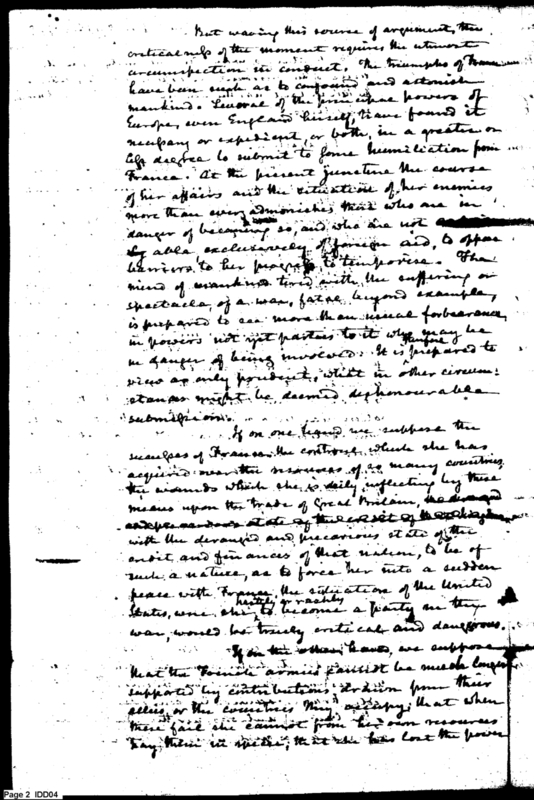 But waving this source of argument, the
critical[ne]ss of the moment requires the utmost
circumspection in conduct. The triumphs of France
have been such as to confound and astonish
mankind. Several of the principal powers of
Europe, even England herself, have found it
necessary or expedient, or both, in a greater or
less degree to submit to some humiliation from
France. At the present juncture the course
of her affairs and the situation of her enemies
more than ever admonishes those who are in
danger of becoming so, and who are not
able exclusively of foreign aid, to oppose
barriers to her progress to temporise. The
mind of mankind tired with the suffering or
spectacle, of a war, fatal beyond example,
is prepared to see more than usual forbearance,
in powers not yet parties to it who may be
in danger of being involved. It is therefore prepared to
view as only prudent, what in other circum-
stances might be deemed dishonourable
submission.
If on one hand we suppose the
successes of France the controul which she has
acquired over the resources of so many countries
the wounds which she is daily inflicting by these
means upon the trade of Great Britain,
with the deranged and precarious state of the
credit and finances of that nation, to be of
such a nature, as to force her into a sudden
peace with France, the situation of the United
States, were she hastily or rashly to become a party in the
war, would be truly critical and dangerous.
If on the other hand, we suppose
that the French armies cannot be much longer
supported by contributions drawn from their
allies, or the countries they occupy; that when
these fail she cannot from her own resources
pay them in specie; that she has lost the power
Page 2 IDD04